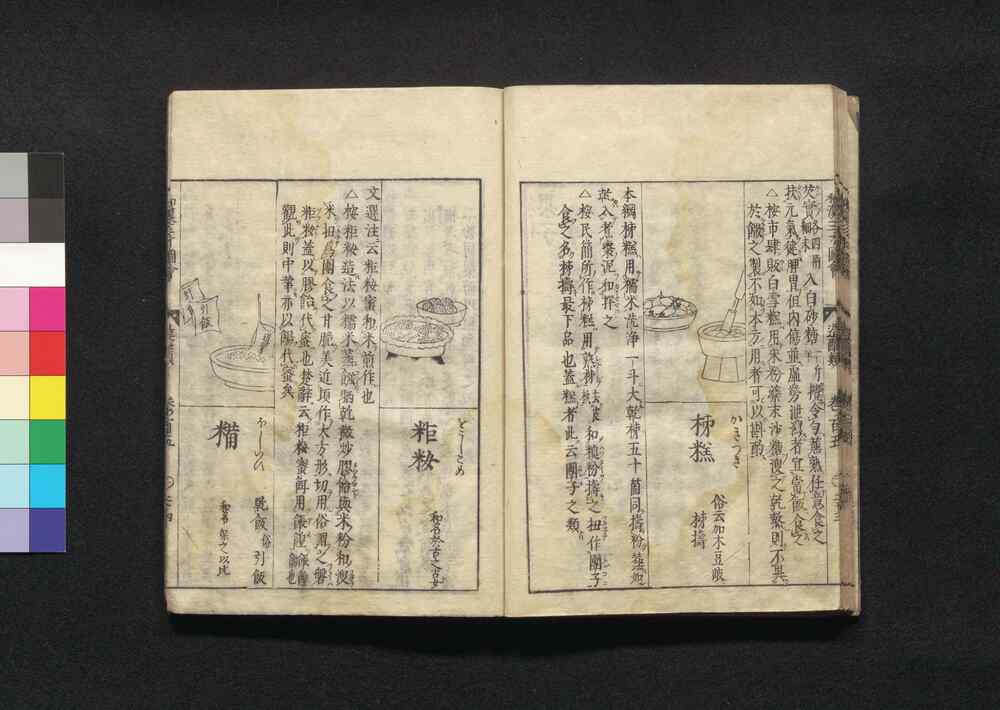 芡實細末 各四兩 入白砂糖一斤 攪令勻蒸熟任意食之
扶元氣健脾胃但內傷並虛勞泄瀉者宜當飯食之
△按市肆販白雪糕用米粉葉末沙糖溲之乾繋則不異
於餻之製不如本方用者可以斟酌
柹糕
かきつき
俗云加木豆歧
柹擣
本綱柹糕用糯米洗淨一斗大乾柹五十箇同擣粉蒸如
乾入煮棗泥和拌之
△按民間所作柹糕用熟柹去皮和糗粉擣之扭作團子
食之名柹擣最下品也蓋糕者此云團子之類
粔籹
おこしこめ
和名於古之古女
文選注云粔籹蜜和米煎作也
△按粔籹造法以糯米蒸飯晒乾微炒膠飴與米粉和溲
米扭爲團食之甘脆美近頃作大方形切用俗謂之磐
粔籹蓋以膠飴代蜜也楚辭云粔籹蜜餌用餦餭
觀此則中華亦以餳代蜜矣
糒
ほしいひ
乾飯 俗 引飯
引飯